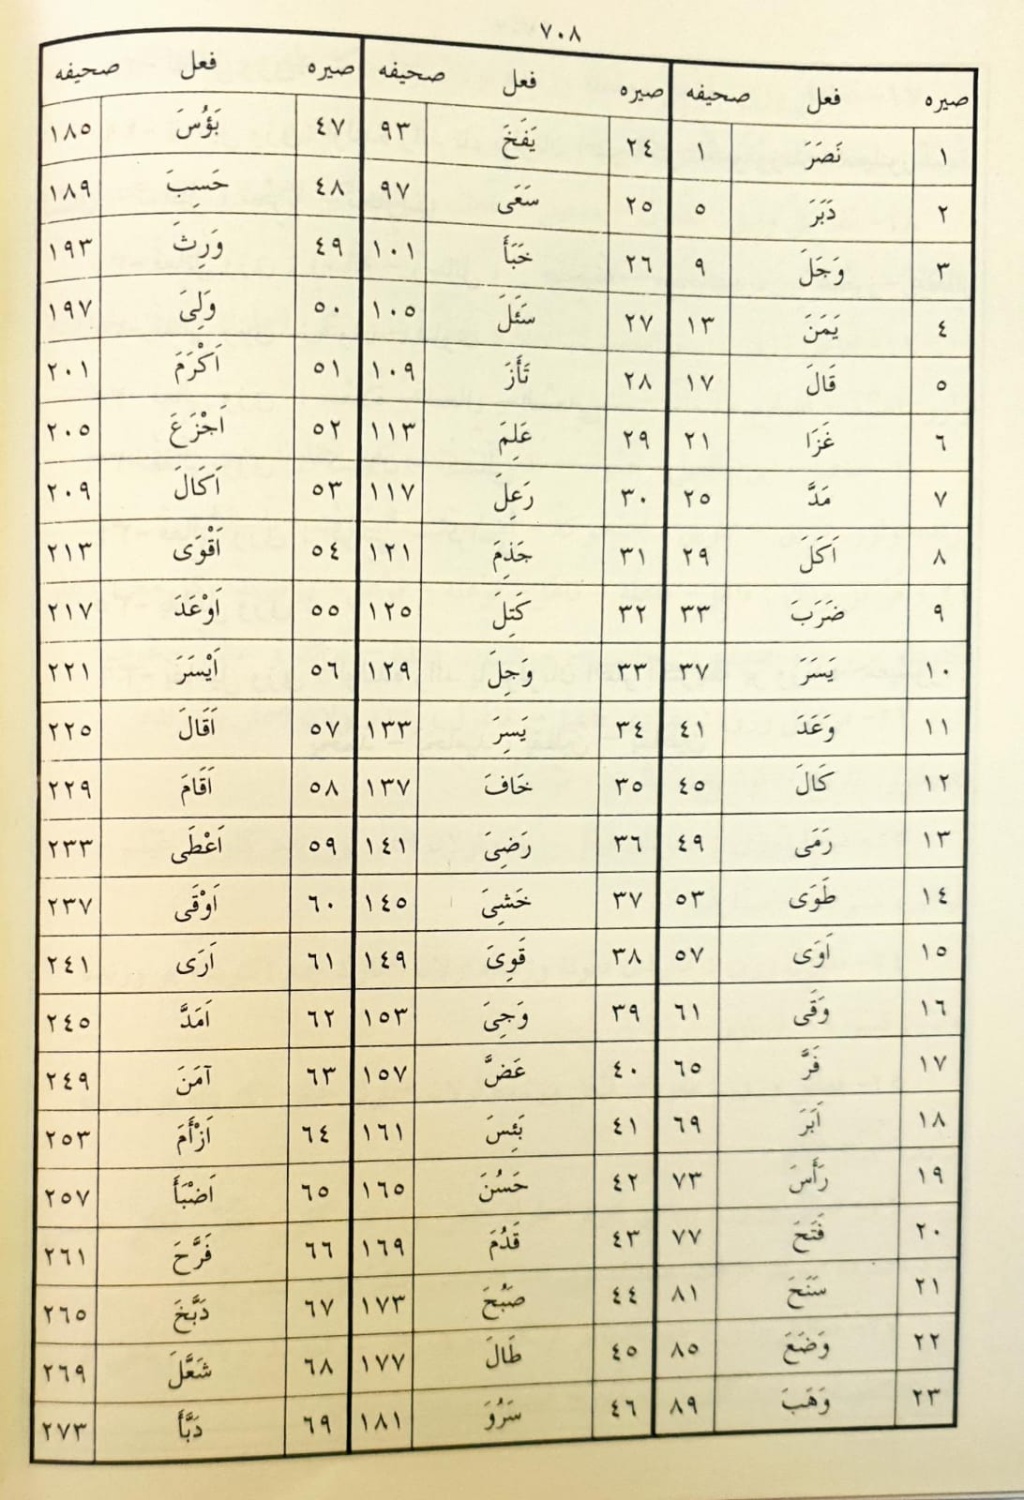 ٧٠٨
صيره فعل صحيفه صيره فعل صحيفه صيره فعل صحيفه
١ نَصَرَ ١ ٢٤ يَفَخَ ٩٣ ٤٧ بَؤُسَ ١٨٥
٢ دَبَرَ ٥ ٢٥ سَعَى ٩٧ ٤٨ حَسِبَ ١٨٩
٣ وَجَلَ ٩ ٢٦ خَبَأَ ١٠١ ٤٩ وَرِثَ ١٩٣
٤ يَمَنَ ١٣ ٢٧ سَئَلَ ١٠٥ ٥٠ وَلِىَ ١٩٧
٥ قَالَ ١٧ ٢٨ تَأَزَ ١٠٩ ٥١ اَكْرَمَ ٢٠١
٦ غَزَا ٢١ ٢٩ عَلِمَ ١١٣ ٥٢ اَجْزَعَ ٢٠٥
٧ مَدَّ ٢٥ ٣٠ رَعِلَ ١١٧ ٥٣ اَكَالَ ٢٠٩
٨ اَكَلَ ٢٩ ٣١ جَذِمَ ١٢١ ٥٤ اَقْوَى ٢١٣
٩ ضَرَبَ ٣٣ ٣٢ كَتِلَ ١٢٥ ٥٥ اَوْعَدَ ٢١٧
١٠ يَسَرَ ٣٧ ٣٣ وَجِلَ ١٢٩ ٥٦ اَيْسَرَ ٢٢١
١١ وَعَدَ ٤١ ٣٤ يَسِرَ ١٣٣ ٥٧ اَقَالَ ٢٢٥
١٢ كَالَ ٤٥ ٣٥ خَافَ ١٣٧ ٥٨ اَقَامَ ٢٢٩
١٣ رَمَى ٤٩ ٣٦ رَضِىَ ١٤١ ٥٩ اَعْطَى ٢٣٣
١٤ طَوَى ٥٣ ٣٧ خَشِىَ ١٤٥ ٦٠ اَوْقَى ٢٣٧
١٥ اَوَى ٥٧ ٣٨ قَوِىَ ١٤٩ ٦١ اَرَى ٢٤١
١٦ وَقَى ٦١ ٣٩ وَجِىَ ١٥٣ ٦٢ اَمَدَّ ٢٤٥
١٧ فَرَّ ٦٥ ٤٠ عَضَّ ١٥٧ ٦٣ آمَنَ ٢٤٩
١٨ اَبَرَ ٦٩ ٤١ بَئِسَ ١٦١ ٦٤ اَزْأَمَ ٢٥٣
١٩ رَأَسَ ٧٣ ٤٢ حَسُنَ ١٦٥ ٦٥ اَضْبَأَ ٢٥٧
٢٠ فَتَحَ ٧٧ ٤٣ قَدُمَ ١٦٩ ٦٦ فَرَّحَ ٢٦١
٢١ سَنَحَ ٨١ ٤٤ صَبُحَ ١٧٣ ٦٧ دَبَّخَ ٢٦٥
٢٢ وَضَعَ ٨٥ ٤٥ طَالَ ١٧٧ ٦٨ شَعَّلَ ٢٦٩
٢٣ وَهَبَ ٨٩ ٤٦ سَرُوَ ١٨١ ٦٩ دَبَّأَ ٢٧٣